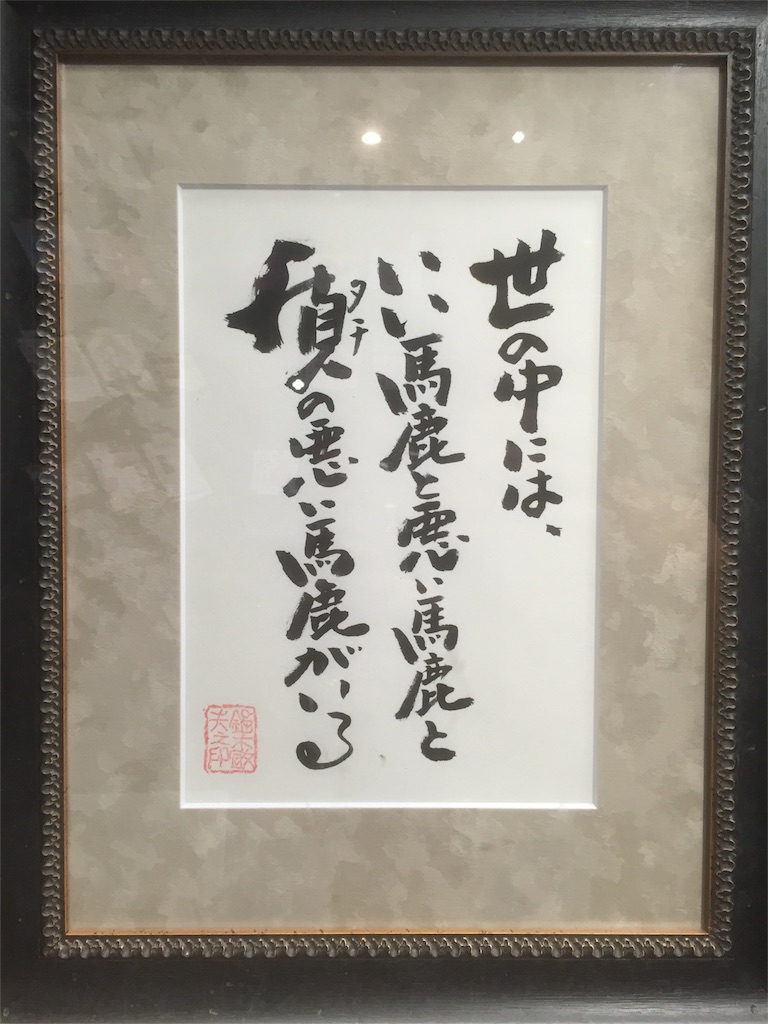 世の中には、
いい馬鹿と悪い馬鹿と
タチ
質の悪い馬鹿がいる
鈴木敏
夫之印